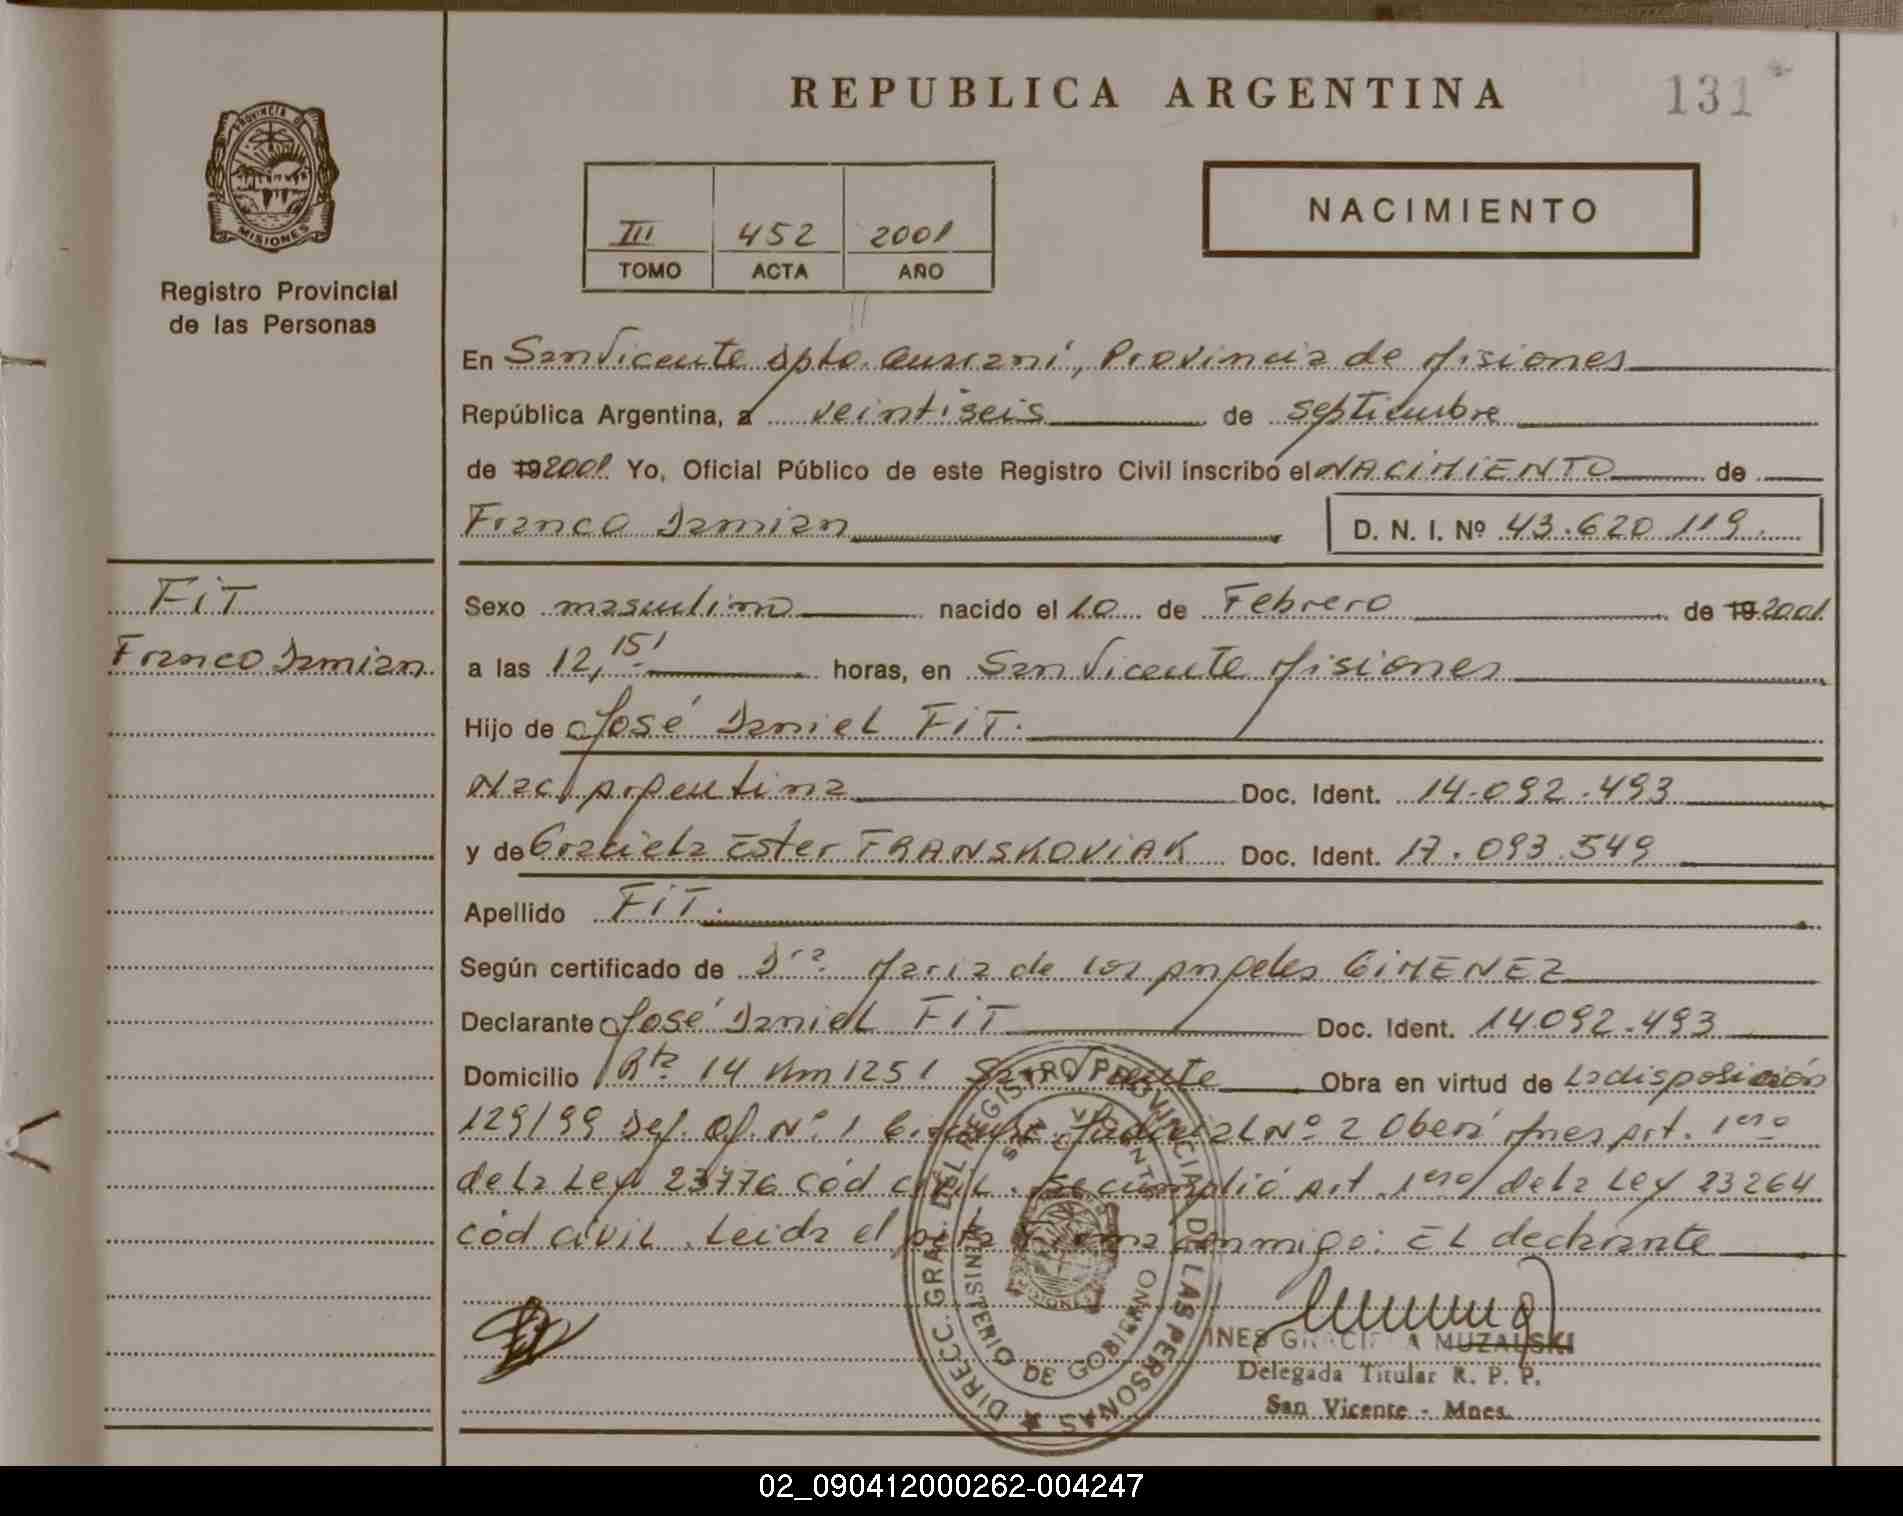 REPUBLICA ARGENTINA
131
PROVINCIA D
MISIONES
Registro Provincial
de las Personas
III 452 2001
TOMO ACTA AÑO
NACIMIENTO
En San Vicente Dpto. Guaraní, Provincia de Misiones
República Argentina, a veintiseis de septiembre
de 19 2001 Yo, Oficial Público de este Registro Civil inscribo el NACIMIENTO de
Franco Damian
D. N. I. Nº 43.620.119.
FiT
Franco Damian
Sexo masculino nacido el 10 de Febrero de 19 2001
a las 12,15' horas, en San Vicente Misiones
Hijo de José Daniel FiT.
Nac. Argentina Doc. Ident. 14.092.493
y de Graciela Ester FRANSKOVIAK Doc. Ident. 17.093.549
Apellido FiT.
Según certificado de Dra. Maria de los Angeles GIMENEZ
Declarante José Daniel FiT Doc. Ident. 14.092.493
Domicilio Rta 14 Km 1251 San Vicente Obra en virtud de la disposición
129/99 Def. Of. Nº 1 Circunc. Judicial Nº 2 Oberá Mnes Art. 1ero
de la Ley 23776 Cód Civil. Se cumplió Art. 1ero de la Ley 23264
Cód Civil. Leida el acta firma conmigo: EL declarante
DIRECC. GRAL. DEL REGISTRO PROVINCIAL DE LAS PERSONAS
SAN VICENTE
MINISTERIO DE GOBIERNO
MISIONES
INES GRACIELA MUZALSKI
Delegada Titular R. P. P.
San Vicente - Mnes.
02_090412000262-004247